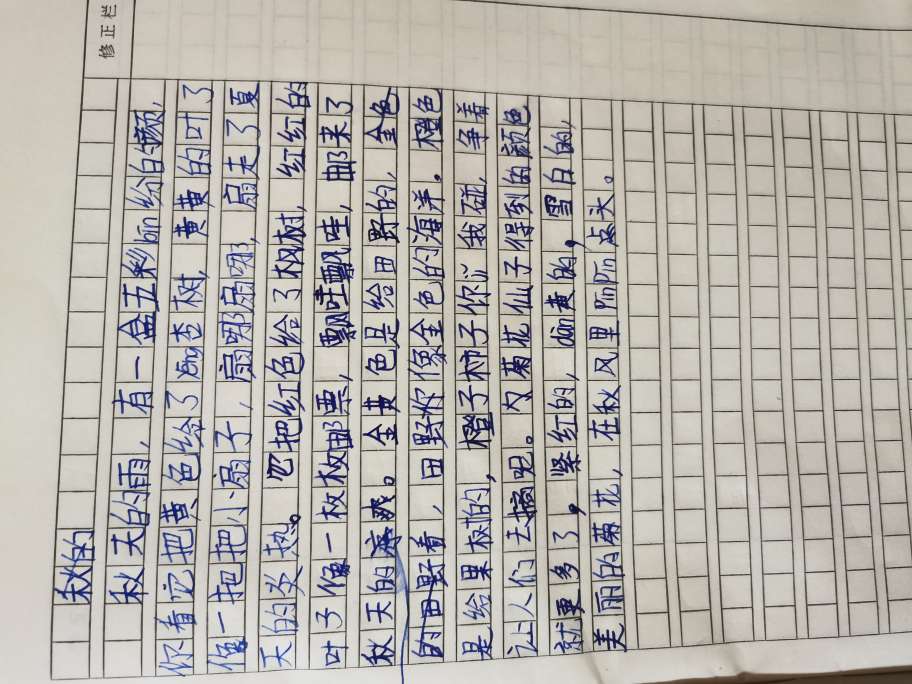 修正栏
秋的
秋天的雨，有一盒五彩bin纷的颜，
你看它把黄色给了yíng杏树，黄黄的叶了
像一把把小扇子，扇哪扇呀，扇走了夏
天的炎热。它把红色给了枫树，红红的
叶子像一枚枚邮票，飘哇飘哇，邮来了
秋天的凉爽。金黄色是给田野的，金色
的田野看，田野你像金色的海洋。橙色
是给果树的，橙子柿子你氵我碰，争着
让人们去摘呢。勺菊花仙子得到的颜色
就更多了，紧红的，dàn黄的，雪白的，
美丽的菊花，在秋风里pínpín点头。